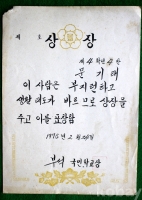 제 호
상 장
제 4 학년 4 반
문 기 태
이 사람은 부지런하고
생활 태도가 바르므로 상장을
주고 이를 표창함
1975 년 2 월 24일
부석 국민학교장